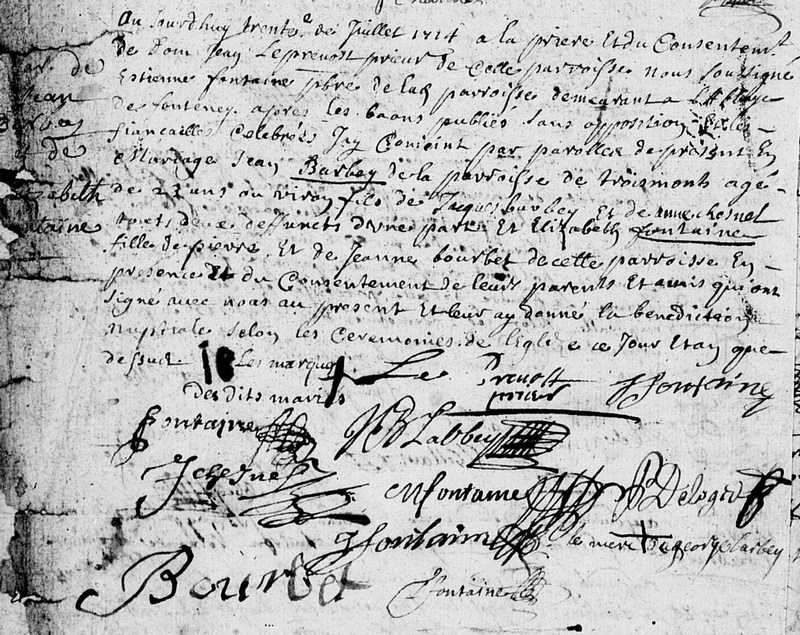 Au Jourdhuy trente de Juillet 1714 a la priere Et du Consentemt
de Dom Jean Leprevost prieur de Cette parroisse nous soussigné
Estienne fontaine pbre de lad parroisse demeurant a
de fonteney apres les bans publiés sans opposition Et les
fiancailles Celebrées Jay Conioint par parolles de present En
Mariage Jean Barbey de la parroisse de troismonts agé
de 22 ans ou viron fils de Jacques barbey Et de anne chesnel
touts deux deffuncts d'une part Et Elizabeth fontaine
fille de pierre Et de Jeanne bourbet de cette parroisse En
presence Et du Consentement de leurs parents Et amis qui ont
signé avec nous au present Et leur ay donné la benediction
nuptialle selon les Ceremonies de leglise ce Jour Et an que
dessus
Les marques
desdits mariés
Le Prevost
prieur
fontaine
fontaine
Labbey
Jchesne
fontaine
Delogey
fontaine
de george barbey
Bourbet
fontaine